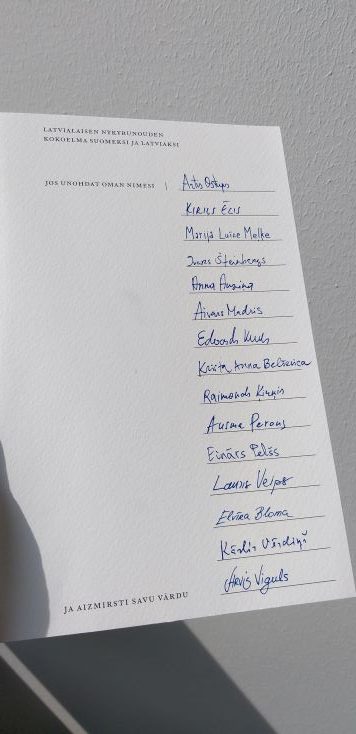 LATVIALAISEN NYKYRUNOUDEN
KOKOELMA SUOMEKSI JA LATVIAKSI
JOS UNOHDAT OMAN NIMESI | Artis Ostups
KIRILS ĒCIS
Marija Luīze Meļķe
Ivars Šteinbergs
Anna Auziņa
Aivars Madris
Edvards Kuks
Krista Anna Belševica
Raimonds Ķirķis
Ausma Perons
Einārs Pelšs
Lauris Veips
Elvīra Bloma
Kārlis Vērdiņš
Arvis Viguls
JA AIZMIRSTI SAVU VĀRDU